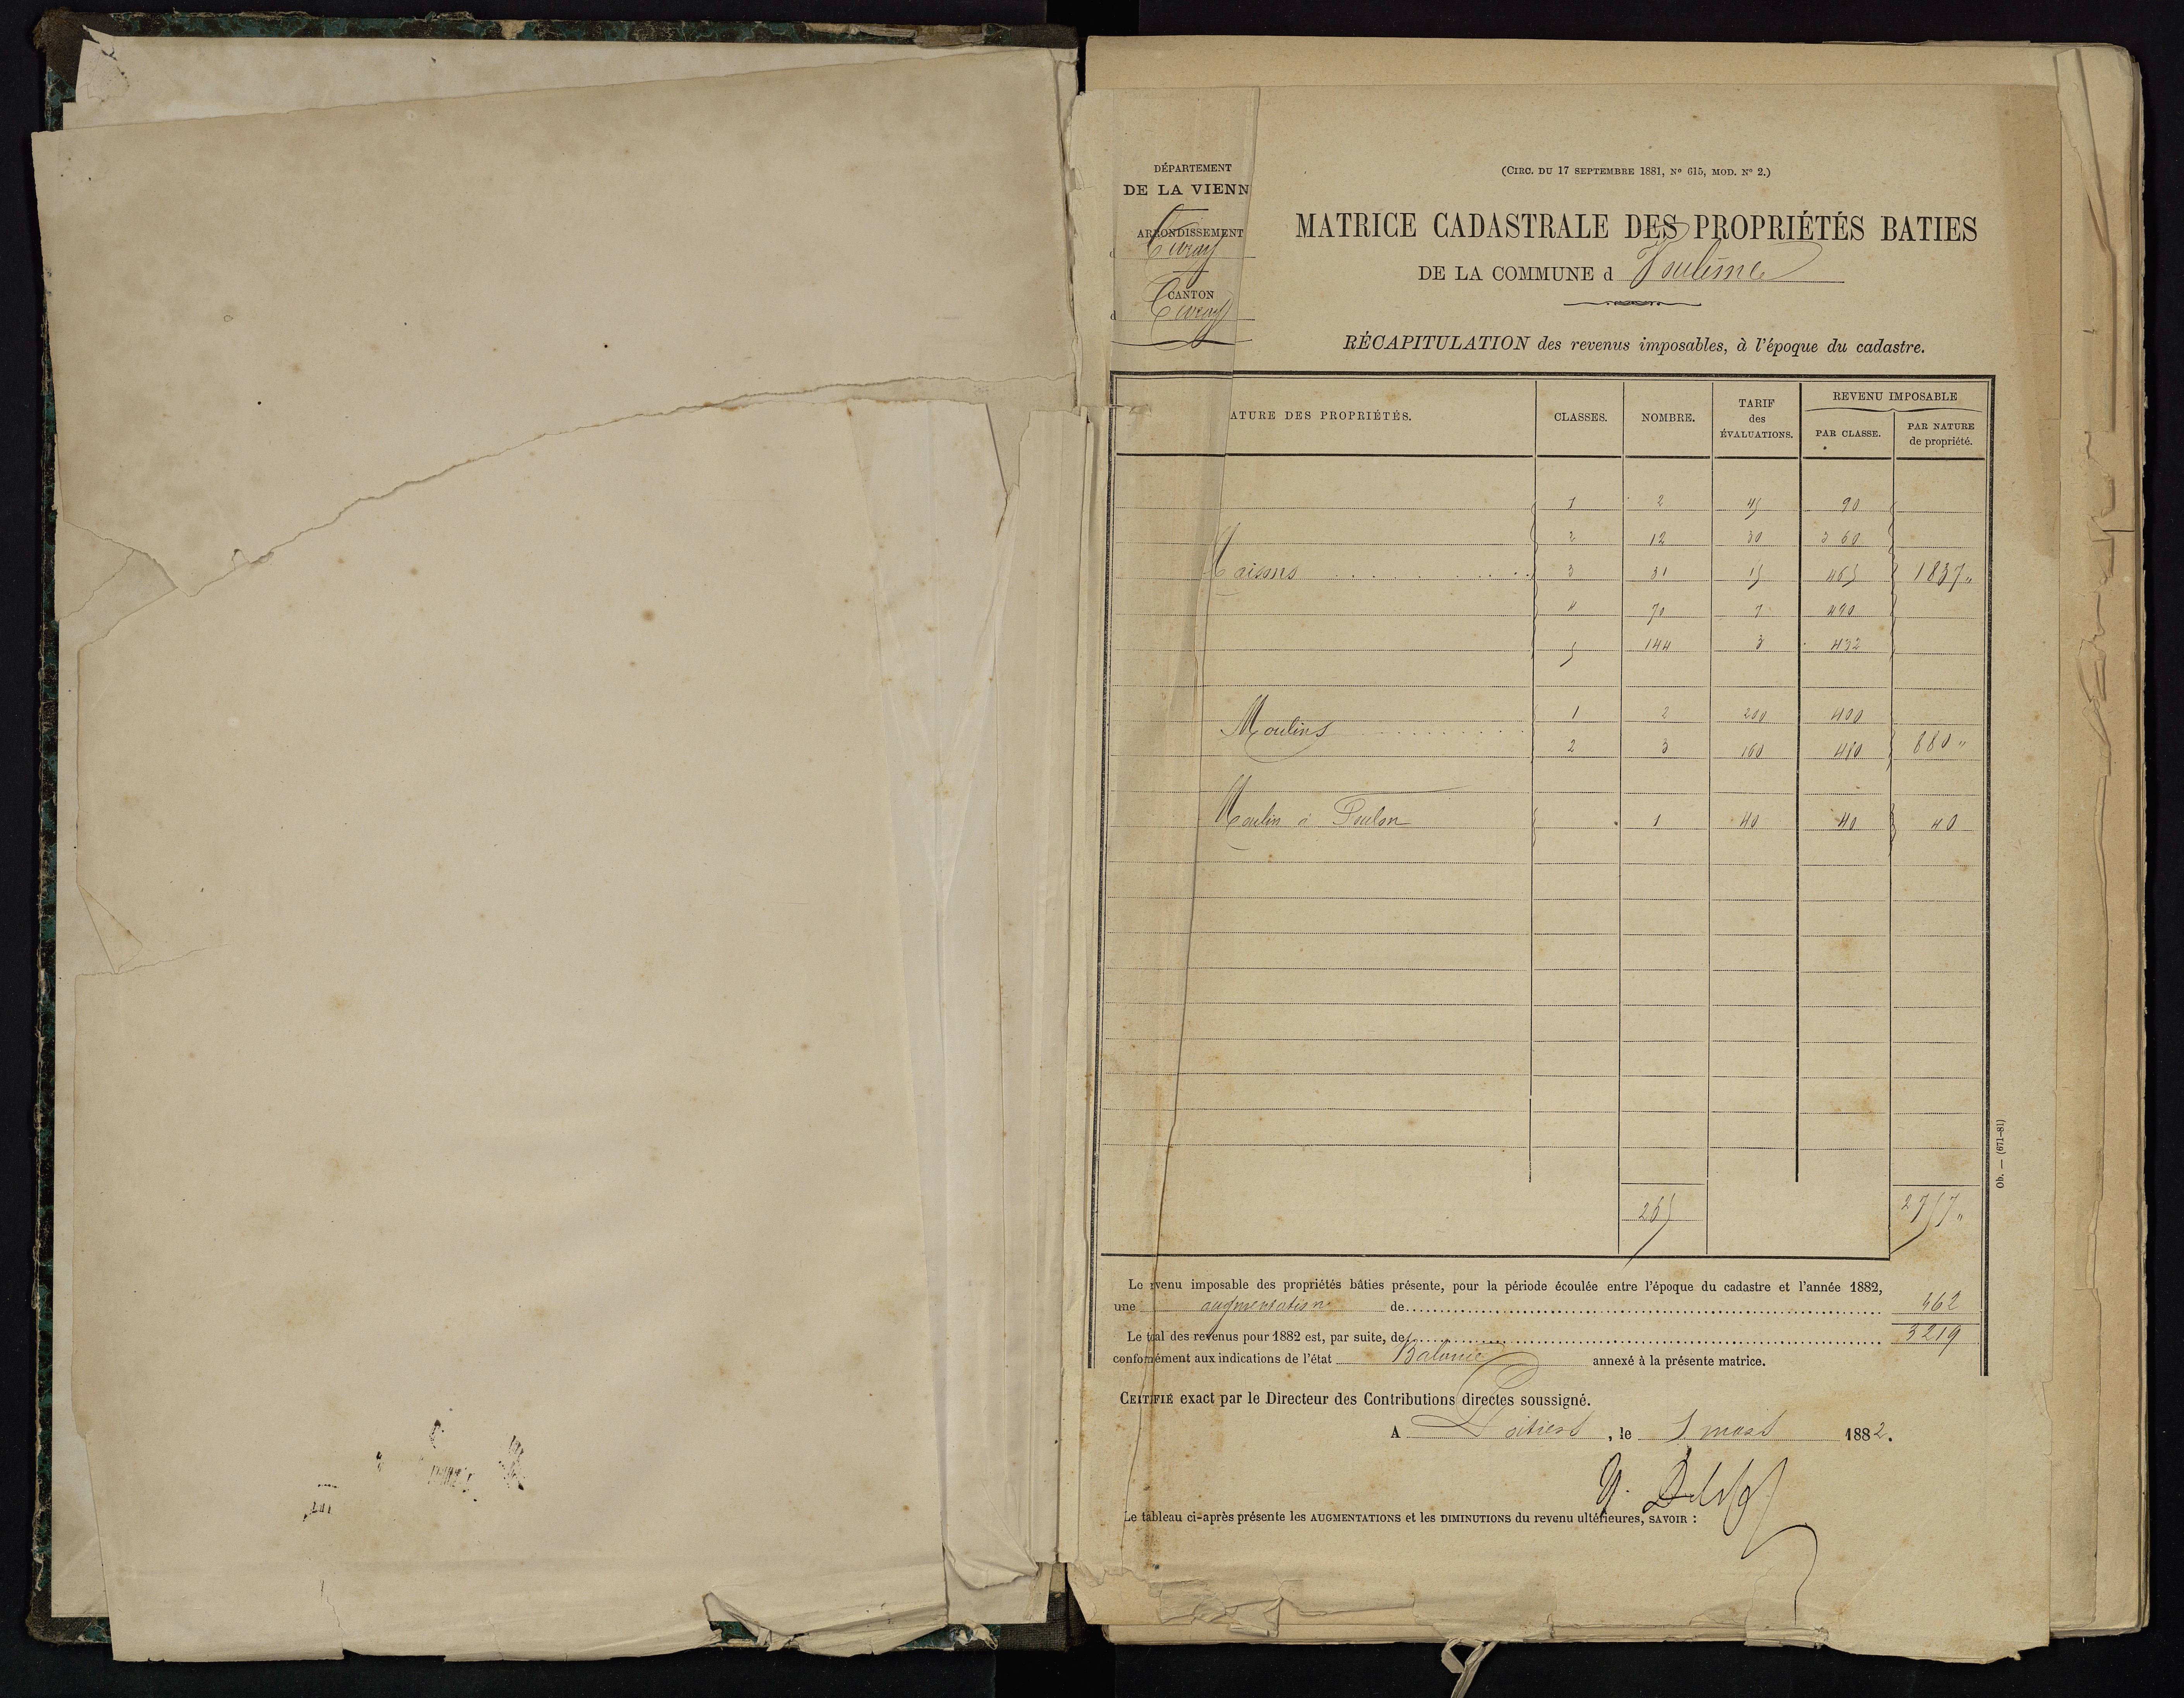 DÉPARTEMENT
DE LA VIENN
ARRONDISSEMENT
d Civray
CANTON
d Civray
(CIRC. DU 17 SEPTEMBRE 1881, N° 615, MOD. N° 2.)
MATRICE CADASTRALE DES PROPRIÉTÉS BATIES
DE LA COMMUNE d Voulême
RÉCAPITULATION des revenus imposables, à l'époque du cadastre.
ATURE DES PROPRIÉTÉS. CLASSES. NOMBRE. TARIF des ÉVALUATIONS. REVENU IMPOSABLE PAR CLASSE. PAR NATURE de propriété.
1 2 45 90
2 12 30 360
Maisons 3 31 15 465 1837 "
4 70 7 490
5 144 3 432
Moulins 1 2 200 400
2 3 160 480 880 "
Moulin à Foulon 1 40 40 40
265 2757 "
Le revenu imposable des propriétés bâties présente, pour la période écoulée entre l'époque du cadastre et l'année 1882,
une augmentation de 462
Le total des revenus pour 1882 est, par suite, de 3219
conformément aux indications de l'état Balance annexé à la présente matrice.
CERTIFIÉ exact par le Directeur des Contributions directes soussigné.
A Poitiers, le 1 mars 1882.
Le tableau ci-après présente les AUGMENTATIONS et les DIMINUTIONS du revenu ultérieures, SAVOIR :
Ob. — (671-81)